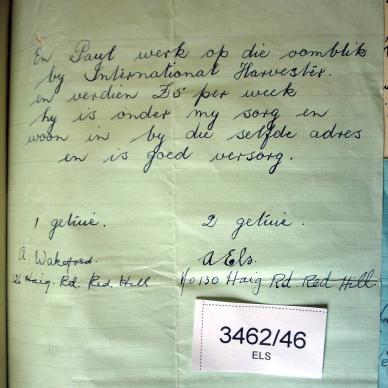 En Paul werk op die oomblik
by International Harvester.
en verdien £5 per week
hy is onder my sorg en
woon in by die selfde adres
en is goed versorg.
1 getuie. 2 getuie.
A. Wakeford. A Els.
126 Haig. Rd. Red Hill 130 Haig Rd. Red Hill.
3462/46
ELS